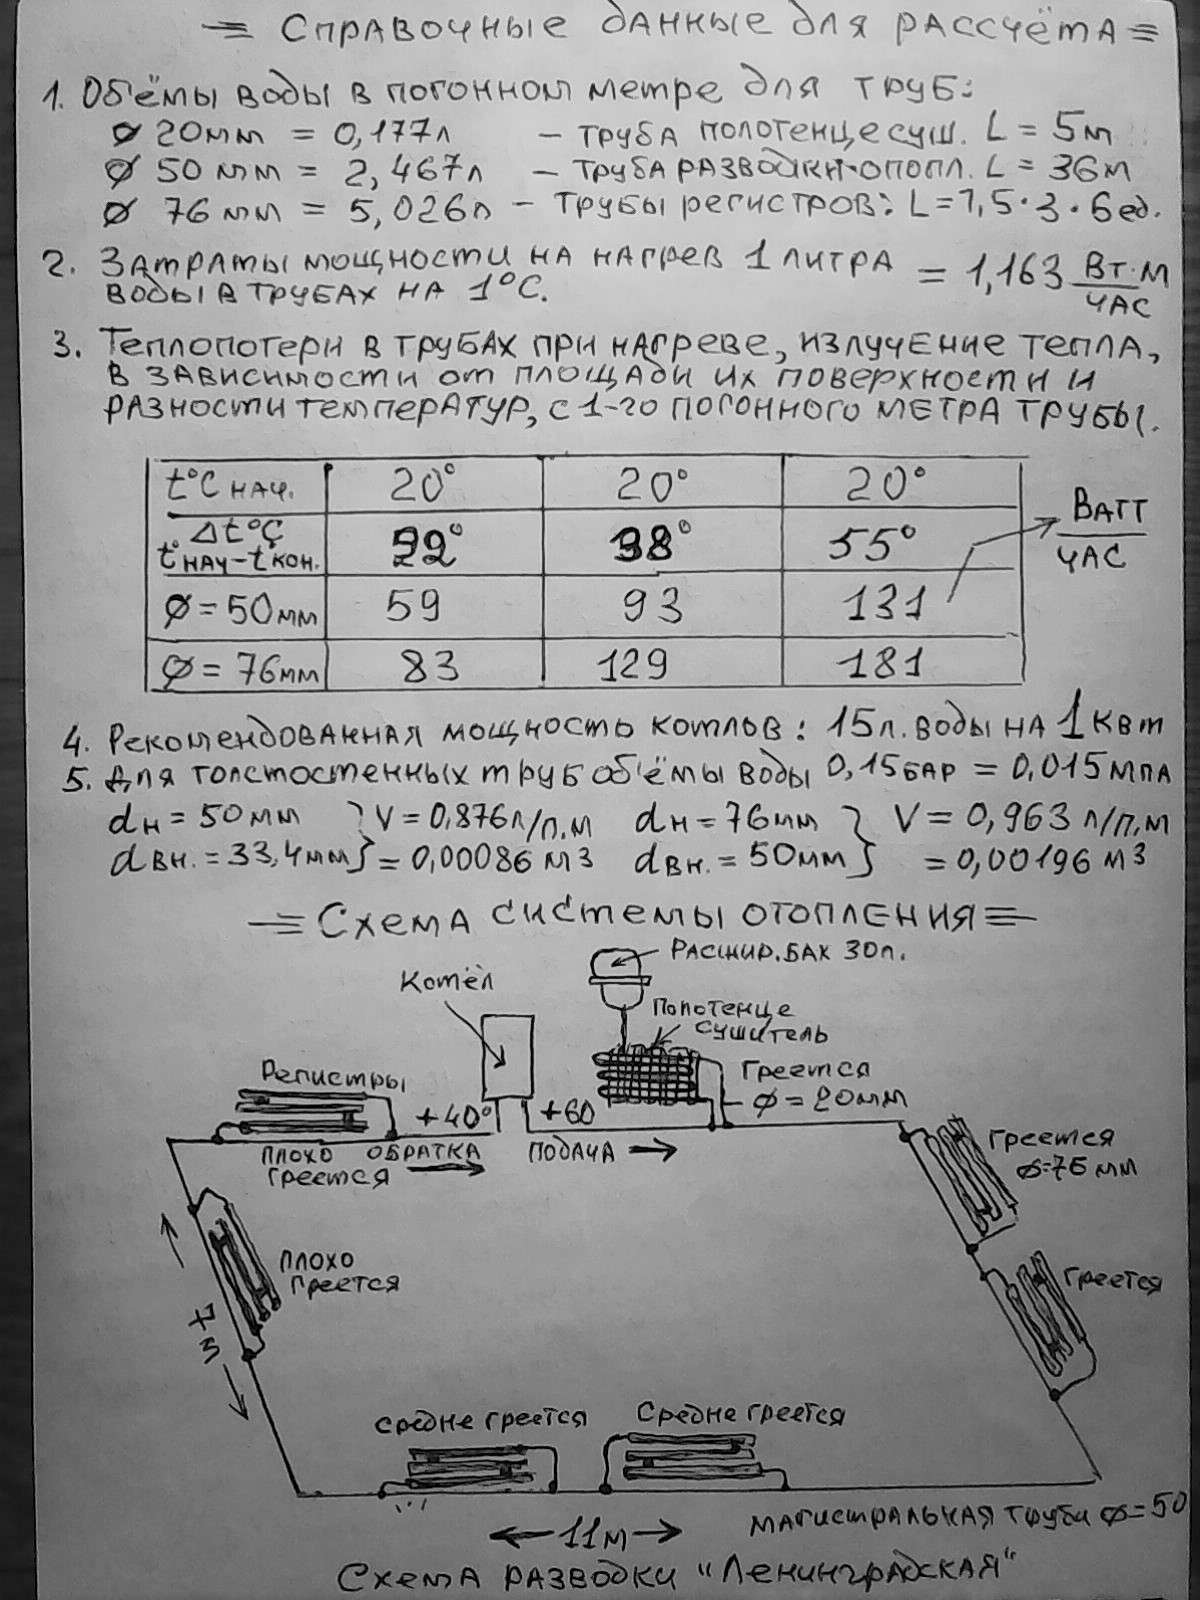 = Справочные данные для рассчёта =
1. Объёмы воды в погонном метре для труб:
ø 20мм = 0,177л - труба полотенцесуш. L = 5м
ø 50мм = 2,467л - труба разводки-опопл. L = 36м
ø 76мм = 5,026л - трубы регистров: L=1,5·3·6ед.
2. Затраты мощности на нагрев 1 литра = 1,163 Вт·м
воды в трубах на 1°С. час
3. Теплопотери в трубах при нагреве, излучение тепла,
в зависимости от площади их поверхности и
разности температур, с 1-го погонного метра трубы.
t°C нач. 20° 20° 20°
Δt°C 38° 55° Ватт
tнач-tкон. час
ø=50мм 59 93 131
ø=76мм 83 129 181
4. Рекомендованная мощность котлов: 15л. воды на 1 квт
5. Для толстостенных труб объёмы воды 0,15бар = 0,015мпа
dн=50мм } V=0,876л/п.м dн=76мм } V=0,963л/п.м
dвн.=33,4мм } =0,00086 м3 dвн.=50мм } =0,00196 м3
= Схема системы отопления =
Расшир.бак 30л.
Котёл
Полотенце
сушитель
Регистры
Греется
ø=20мм
+40° +60
Плохо обратка подача
греется
Греется
ø=76мм
Плохо
греется
Греется
7м
Средне греется Средне греется
11м
Магистральная труба ø=50
Схема разводки "Ленинградская"